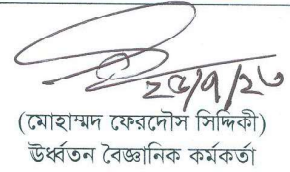 ২৫/৭/২৩
(মোহাম্মদ ফেরদৌস সিদ্দিকী)
ঊর্ধ্বতন বৈজ্ঞানিক কর্মকর্তা